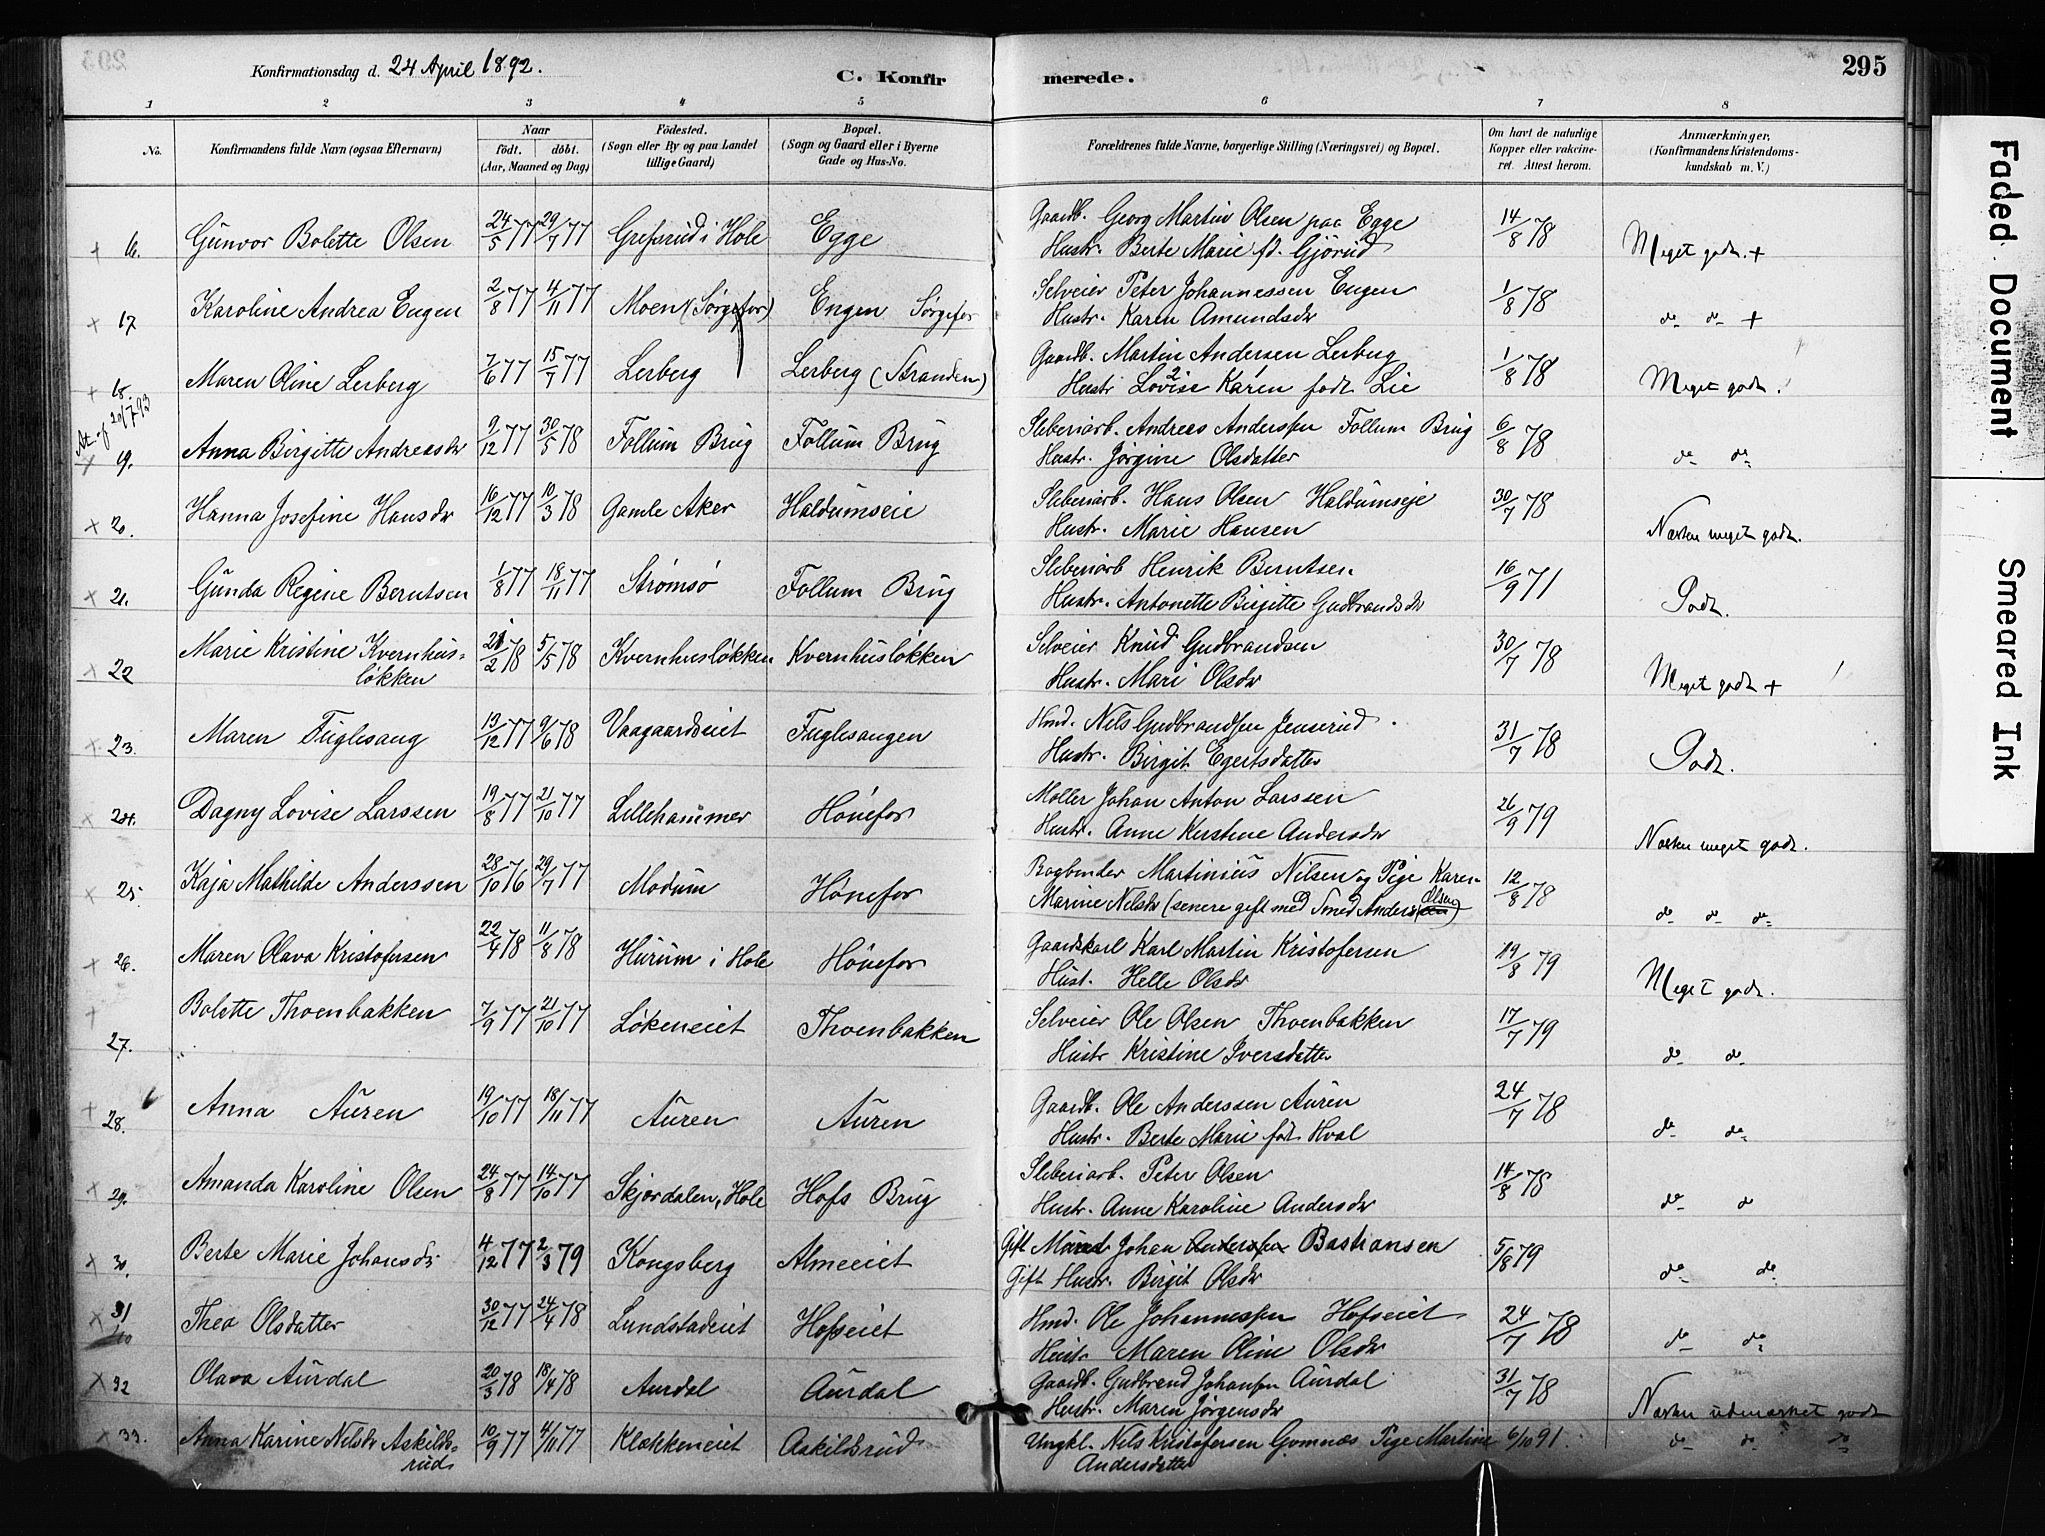 Konfirmationsdag d. 24 April 1892.
C. Konfir
merede.
295
1 2 3 4 5 6 7 8
No.
Konfirmandens fulde Navn (ogsaa Efternavn)
Naar
födt. döbt.
(Aar, Maaned og Dag)
Födested.
(Sogn eller By og paa Landet
tillige Gaard)
Bopæl.
(Sogn og Gaard eller i Byerne
Gade og Hus-No.
Forældrenes fulde Navne, borgerlige Stilling (Næringsvei) og Bopæl.
Om havt de naturlige
Kopper eller vakcine-
ret. Attest herom.
Anmærkninger.
(Konfirmandens Kristendoms-
kundskab m. V.)
+ 16. Gunvor Bolette Olsen 24/5 77 29/7 77 Grefsrud i Hole Egge Gaardb. Georg Martin Olsen paa Egge 14/8 78 Meget godt. +
Hustr. Berte Marie fd. Gjörud
x 17 Karoline Andrea Engen 2/8 77 4/11 77 Moen (Sørgefor) Engen Sørgefor Selveier Peter Johannessen Engen 1/8 78 do do +
Hustr. Karen Amundsdr
+ 18. Maren Oline Lerberg 7/6 77 15/7 77 Lerberg Lerberg (Stranden) Gaardb. Martin Andersen Lerberg 1/8 78 Meget godt.
Hustr Lovise 2 Karen 1 født Lie
At. af 20/7.93
x 19. Anna Birgitte Andreasdr 9/12 77 30/5 78 Follum Brug Follum Brug Sleberiarb. Andreas Anderssen Follum Brug 6/8 78 do do
Hustr. Jørgine Olsdatter
x 20. Hanna Josefine Hansdr 16/12 77 10/3 78 Gamle Aker Haldumseie Sleberiarb. Hans Olsen Haldumseje 30/7 78 Næsten meget godt.
Hustr. Marie Hansen
x 21. Gunda Regine Berntsen 1/8 77 18/11 77 Strømsø Follum Brug Sleberiarb Henrik Berntsen 16/9 71 Godt.
Hustr. Antonette Birgitte Gudbrandsdr
x 22 Marie Kristine Kvernhus- 21/2 78 5/5 78 Kvernhusløkken Kvernhusløkken Selveier Knud Gudbrandsen 30/7 78 Meget godt +
løkken Hustr. Mari Olsdr
x 23. Maren Fuglesang 13/12 77 9/6 78 Vaagaardseiet Fuglesangen Hmd. Nels Gudbrandssen Jenserud 31/7 78 Godt.
Hustr. Birgit Egertsdatter
x 24. Dagny Lovise Larssen 19/8 77 21/10 77 Lillehammer Hönefos Møller Johan Anton Larssen 26/9 79 Næsten meget godt.
Hustr. Anne Kirstine Andersdr
x 25 Kaja Mathilde Anderssen 28/10 76 29/7 77 Modum Hönefos Bogbinder Martinius Nilsen og Pige Karen 12/8 78 do do do
Marine Nelsdr (senere gift med Smed Anders Olsen)
x 26. Maren Olava Kristofersen 22/4 78 11/8 78 Hurum i Hole Hönefos Gaardskarl Karl Martin Kristofersen 19/8 79 Meget godt.
Hust. Helle Olsdr
+ 27. Bolette Thoenbakken 7/9 77 21/10 77 Løkeneiet Thoenbakken Selveier Ole Olsen Thoenbakken 17/7 79 do do
Hustr Kristine Iversdatter
+ 28. Anna Auren 19/10 77 18/11 77 Auren Auren Gaardb. Ole Anderssen Auren 24/7 78 do do
Hustr. Berte Marie født Hval
x 29. Amanda Karoline Olsen 24/8 77 14/10 77 Skjørdalen, Hole Hofs Brug Sleberiarb. Peter Olsen 14/8 78 do do
Hustr. Anne Karoline Andersdr
x 30. Berte Marie Johansdr 4/12 77 2/3 79 Kongsberg Almeeiet Gift Mand Johan Anderssen Bastiansen 5/8 79 do do
Gift Hustr. Birgit Olsdr
x 31 Thea Olsdatter 30/12 77 24/4 78 Lundstadeiet Hofseiet Hmd. Ole Johannessen Hofseiet 24/7 78 do do
Hustr Maren Oline Olsdr
x 32 Olava Aurdal 20/3 78 18/4 78 Aurdal Aurdal Gaardb. Gudbrand Johansen Aurdal 31/7 78 Næsten udmærket godt
Hustr. Maren Jørgensdr
x 33. Anna Karine Nelsdr Askilds- 10/9 77 4/11 77 Klækkeneiet Askildsrud Ungkl. Nels Kristofersen Gomnæs Pige Martine 6/10 91. do do do
rud Andersdatter
Faded Document
Smeared Ink